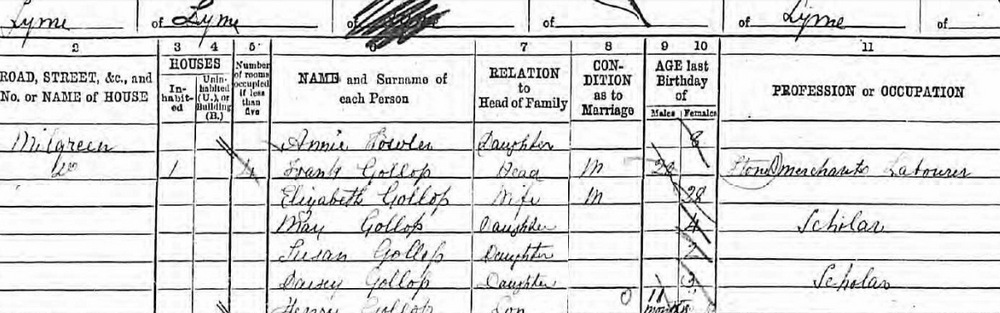 Lyme of Lyme of of Lyme of
2 3 4 5 6 7 8 9 10 11
ROAD, STREET, &c., and No. or NAME of HOUSE
HOUSES
In-habit-ed
Unin-habited (U.), or Building (B.)
Number of rooms occupied if less than five
NAME and Surname of each Person
RELATION to Head of Family
CON-DITION as to Marriage
AGE last Birthday of
Males Females
PROFESSION or OCCUPATION
Milgreen Annie Fowler Daughter 8
Do 1 4 Frank Gollop Head M 28 Stone merchants Labourer
Elizabeth Gollop Wife M 28
May Gollop Daughter 4 Scholar
Susan Gollop Daughter 2
Daisey Gollop Daughter 3 Scholar
Henry Gollop Son 11 months